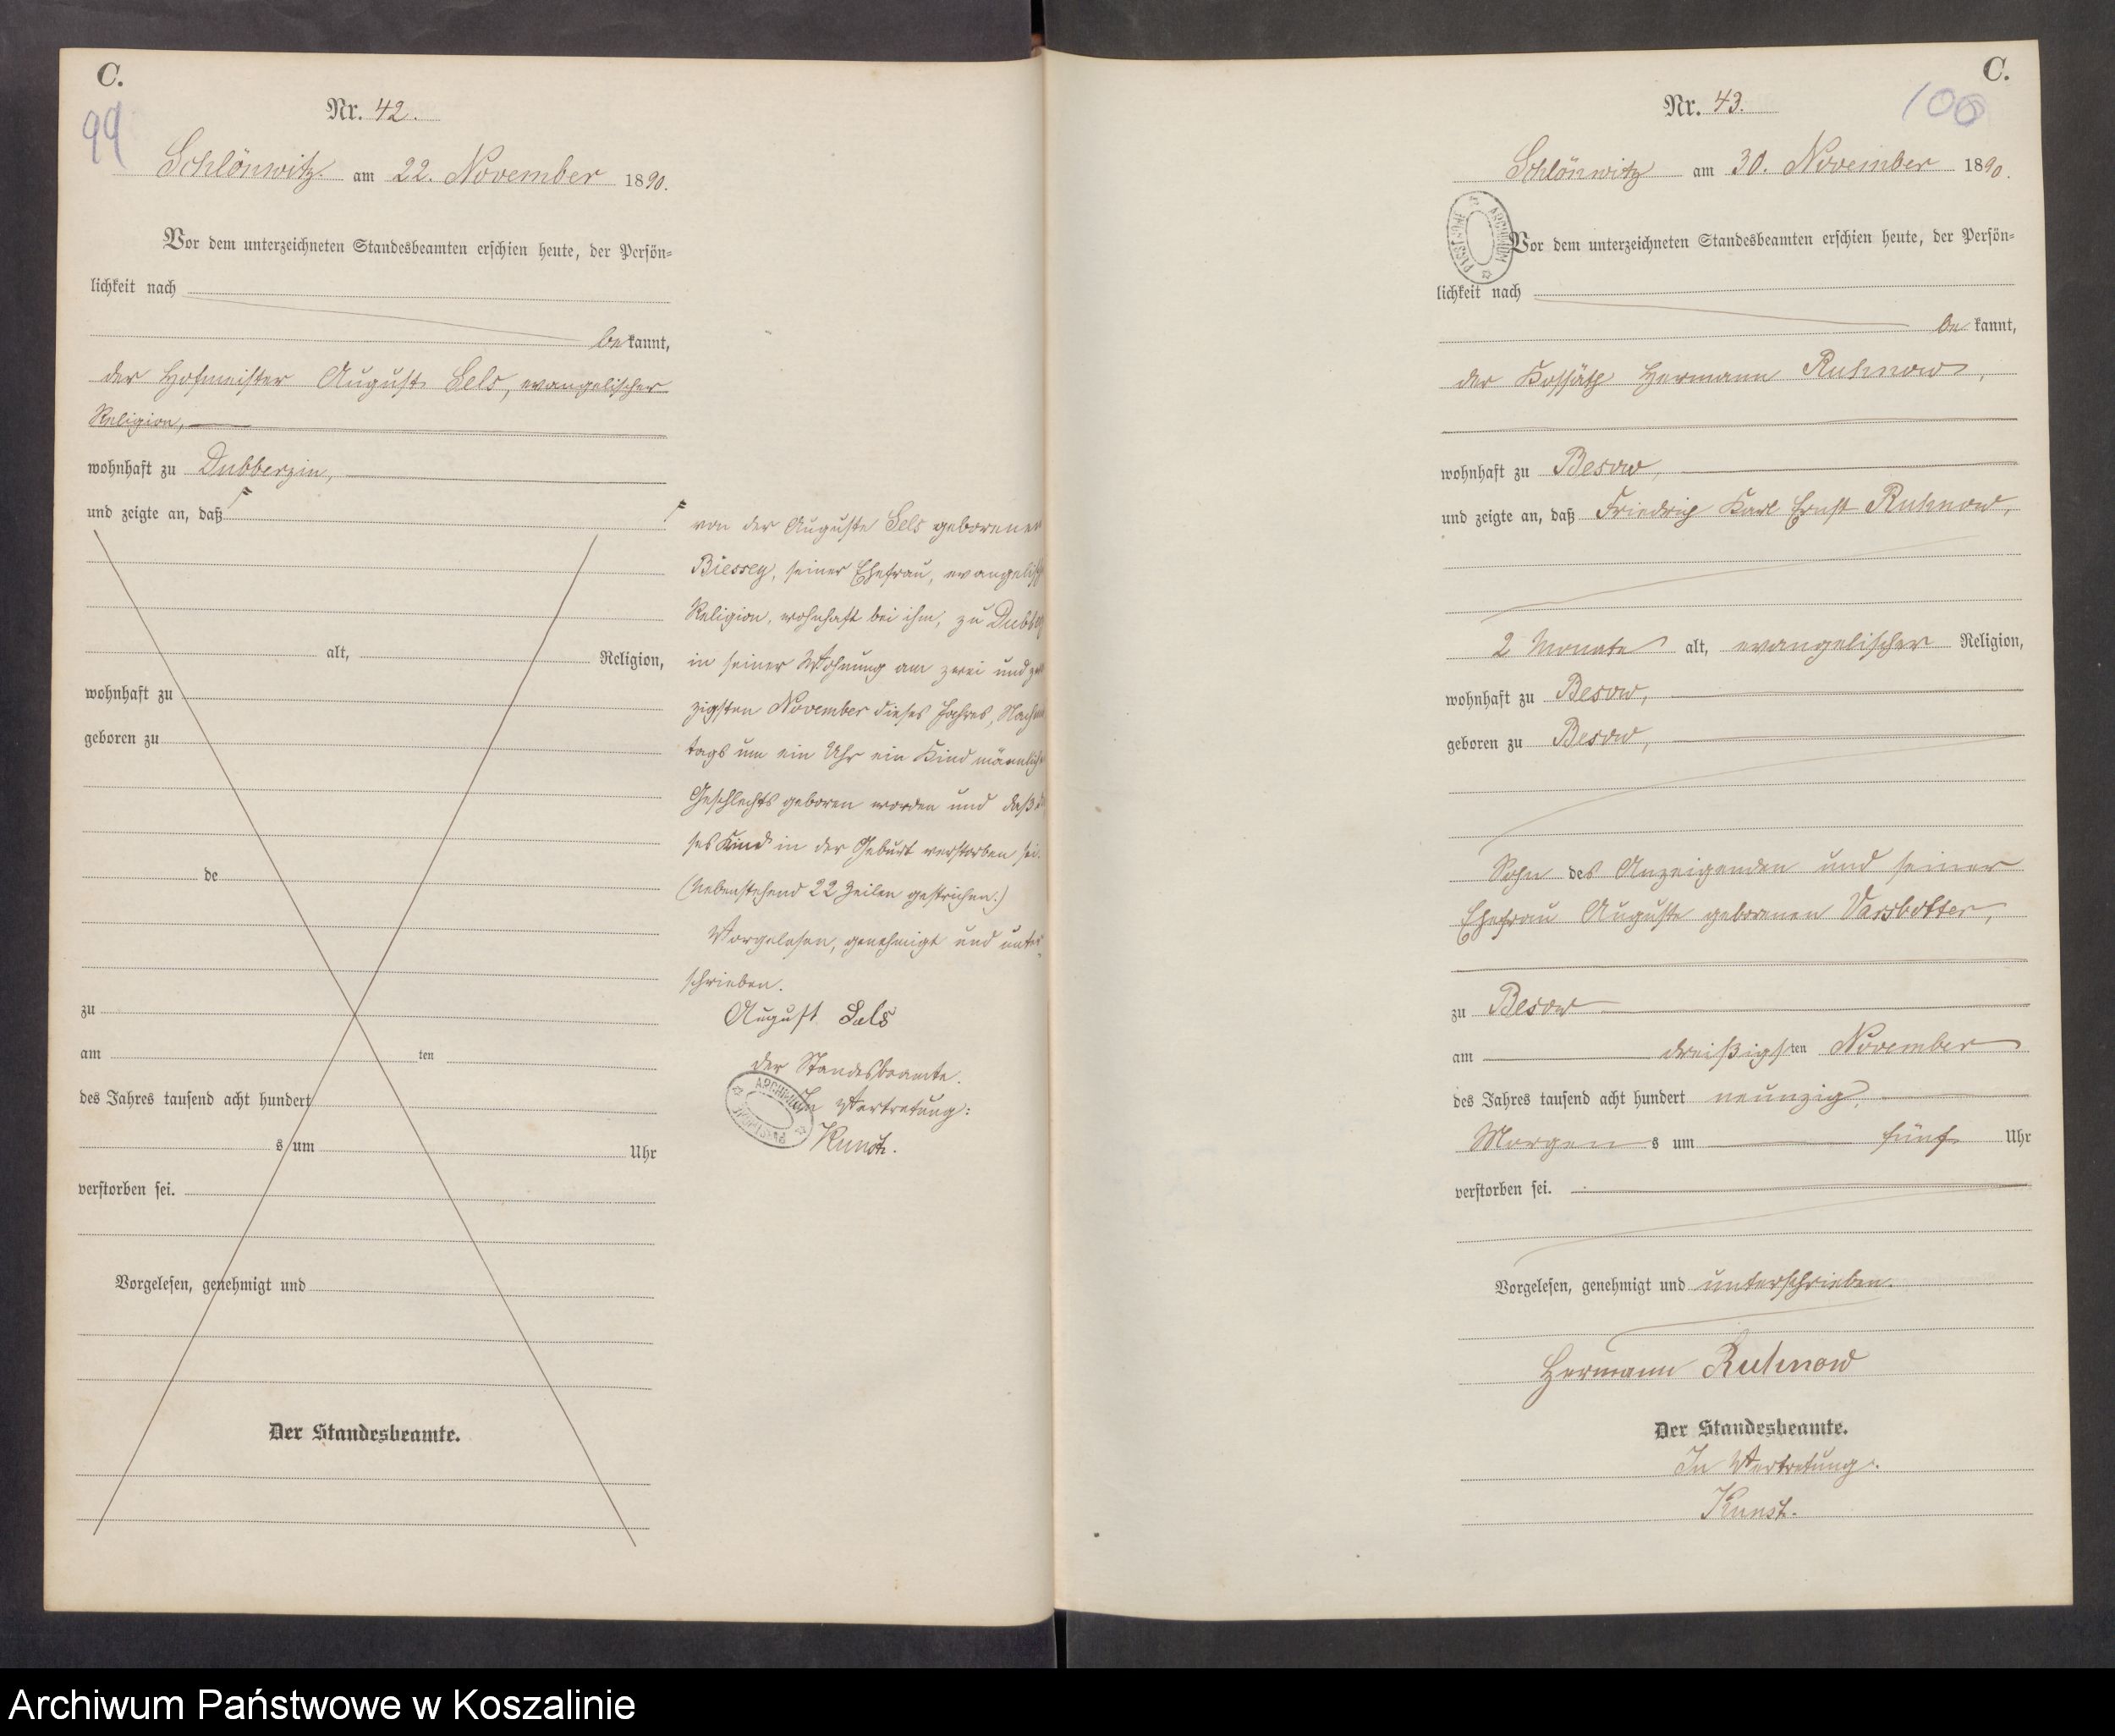 C.
99
Nr. 42.
Schlönwitz am 22. November 1890.
Vor dem unterzeichneten Standesbeamten erschien heute, der Persön-
lichkeit nach
bekannt,
der Hofmeister August Sels, evangelischer
Religion,
wohnhaft zu Dubberzin,
und zeigte an, daß
alt, Religion,
wohnhaft zu
geboren zu
de
zu
am ten
des Jahres tausend acht hundert
s um Uhr
verstorben sei.
Vorgelesen, genehmigt und
Der Standesbeamte.
von der Auguste Sels geborenen
Biessey, seiner Ehefrau, evangelisch
Religion, wohnhaft bei ihm, zu Dubbe
in seiner Wohnung am zwei und zwan
zigsten November dieses Jahres, Nachmit
tags um ein Uhr ein Kind männlich
Geschlechts geboren worden und daß die
ses Kind in der Geburt verstorben sei.
(Nebenstehend 22 Zeilen gestrichen.)
Vorgelesen, genehmigt und unter
schrieben.
August Sels
der Standesbeamte.
In Vertretung:
Kunst.
ARCHIWUM PAŃSTWOWE
C.
100
Nr. 43.
Schlönwitz am 30. November 1890.
ARCHIWUM PAŃSTWOWE
Vor dem unterzeichneten Standesbeamten erschien heute, der Persön-
lichkeit nach
bekannt,
der Kossäth Hermann Ruhnow,
wohnhaft zu Besow,
und zeigte an, daß Friedrich Karl Ernst Ruhnow,
2 Monate alt, evangelischer Religion,
wohnhaft zu Besow,
geboren zu Besow,
Sohn des Anzeigenden und seiner
Ehefrau Auguste geborenen Vassbotter,
zu Besow
am dreißigsten November
des Jahres tausend acht hundert neunzig,
Morgens um fünf Uhr
verstorben sei.
Vorgelesen, genehmigt und unterschrieben.
Hermann Ruhnow
Der Standesbeamte.
In Vertretung.
Kunst.
Archiwum Państwowe w Koszalinie